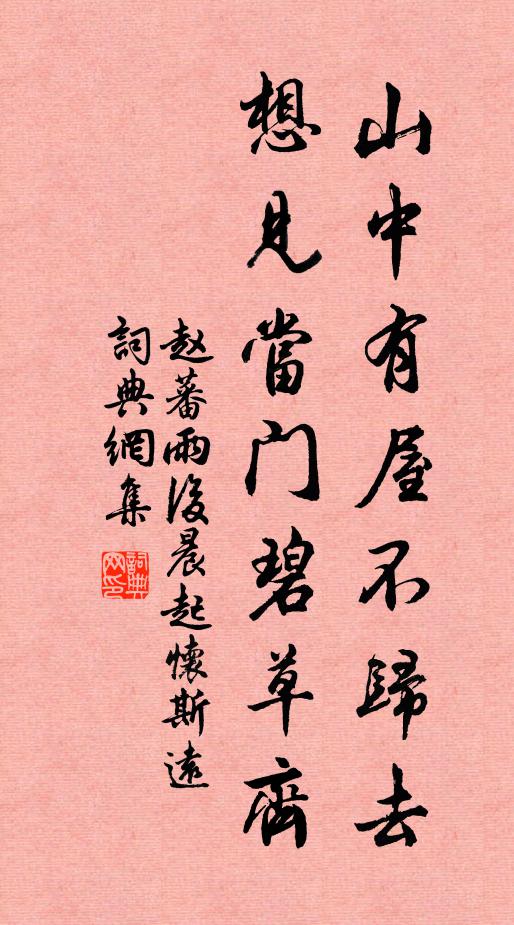 山中有屋不歸去
想見當門碧草齊
赵蕃雨後晨起懷斯遠
詞典網集
詞典網印